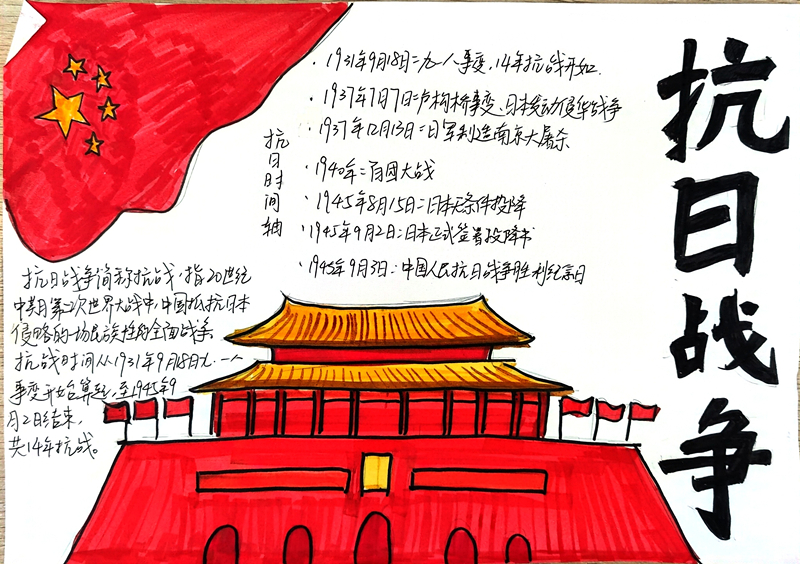 抗日战争
抗日时间轴
·1931年9月18日:九一八事变,14年抗战开始.
·1937年7月7日:卢构桥事变、日本发动侵华战争
·1937年12月13日:日军制造南京大屠杀
·1940年:百团大战
·1945年8月15日:日本无条件投降
·1945年9月2日:日本正式签署投降书
·1945年9月3日:中国人民抗日战争胜利纪念日
抗日战争简称抗战,指20世纪
中期第二次世界大战中,中国抵抗日本
侵略的一场民族性的全面战争
抗战时间从1931年9月18日九·一八
事变开始算起,至1945年9
月2日结束,
共14年抗战。